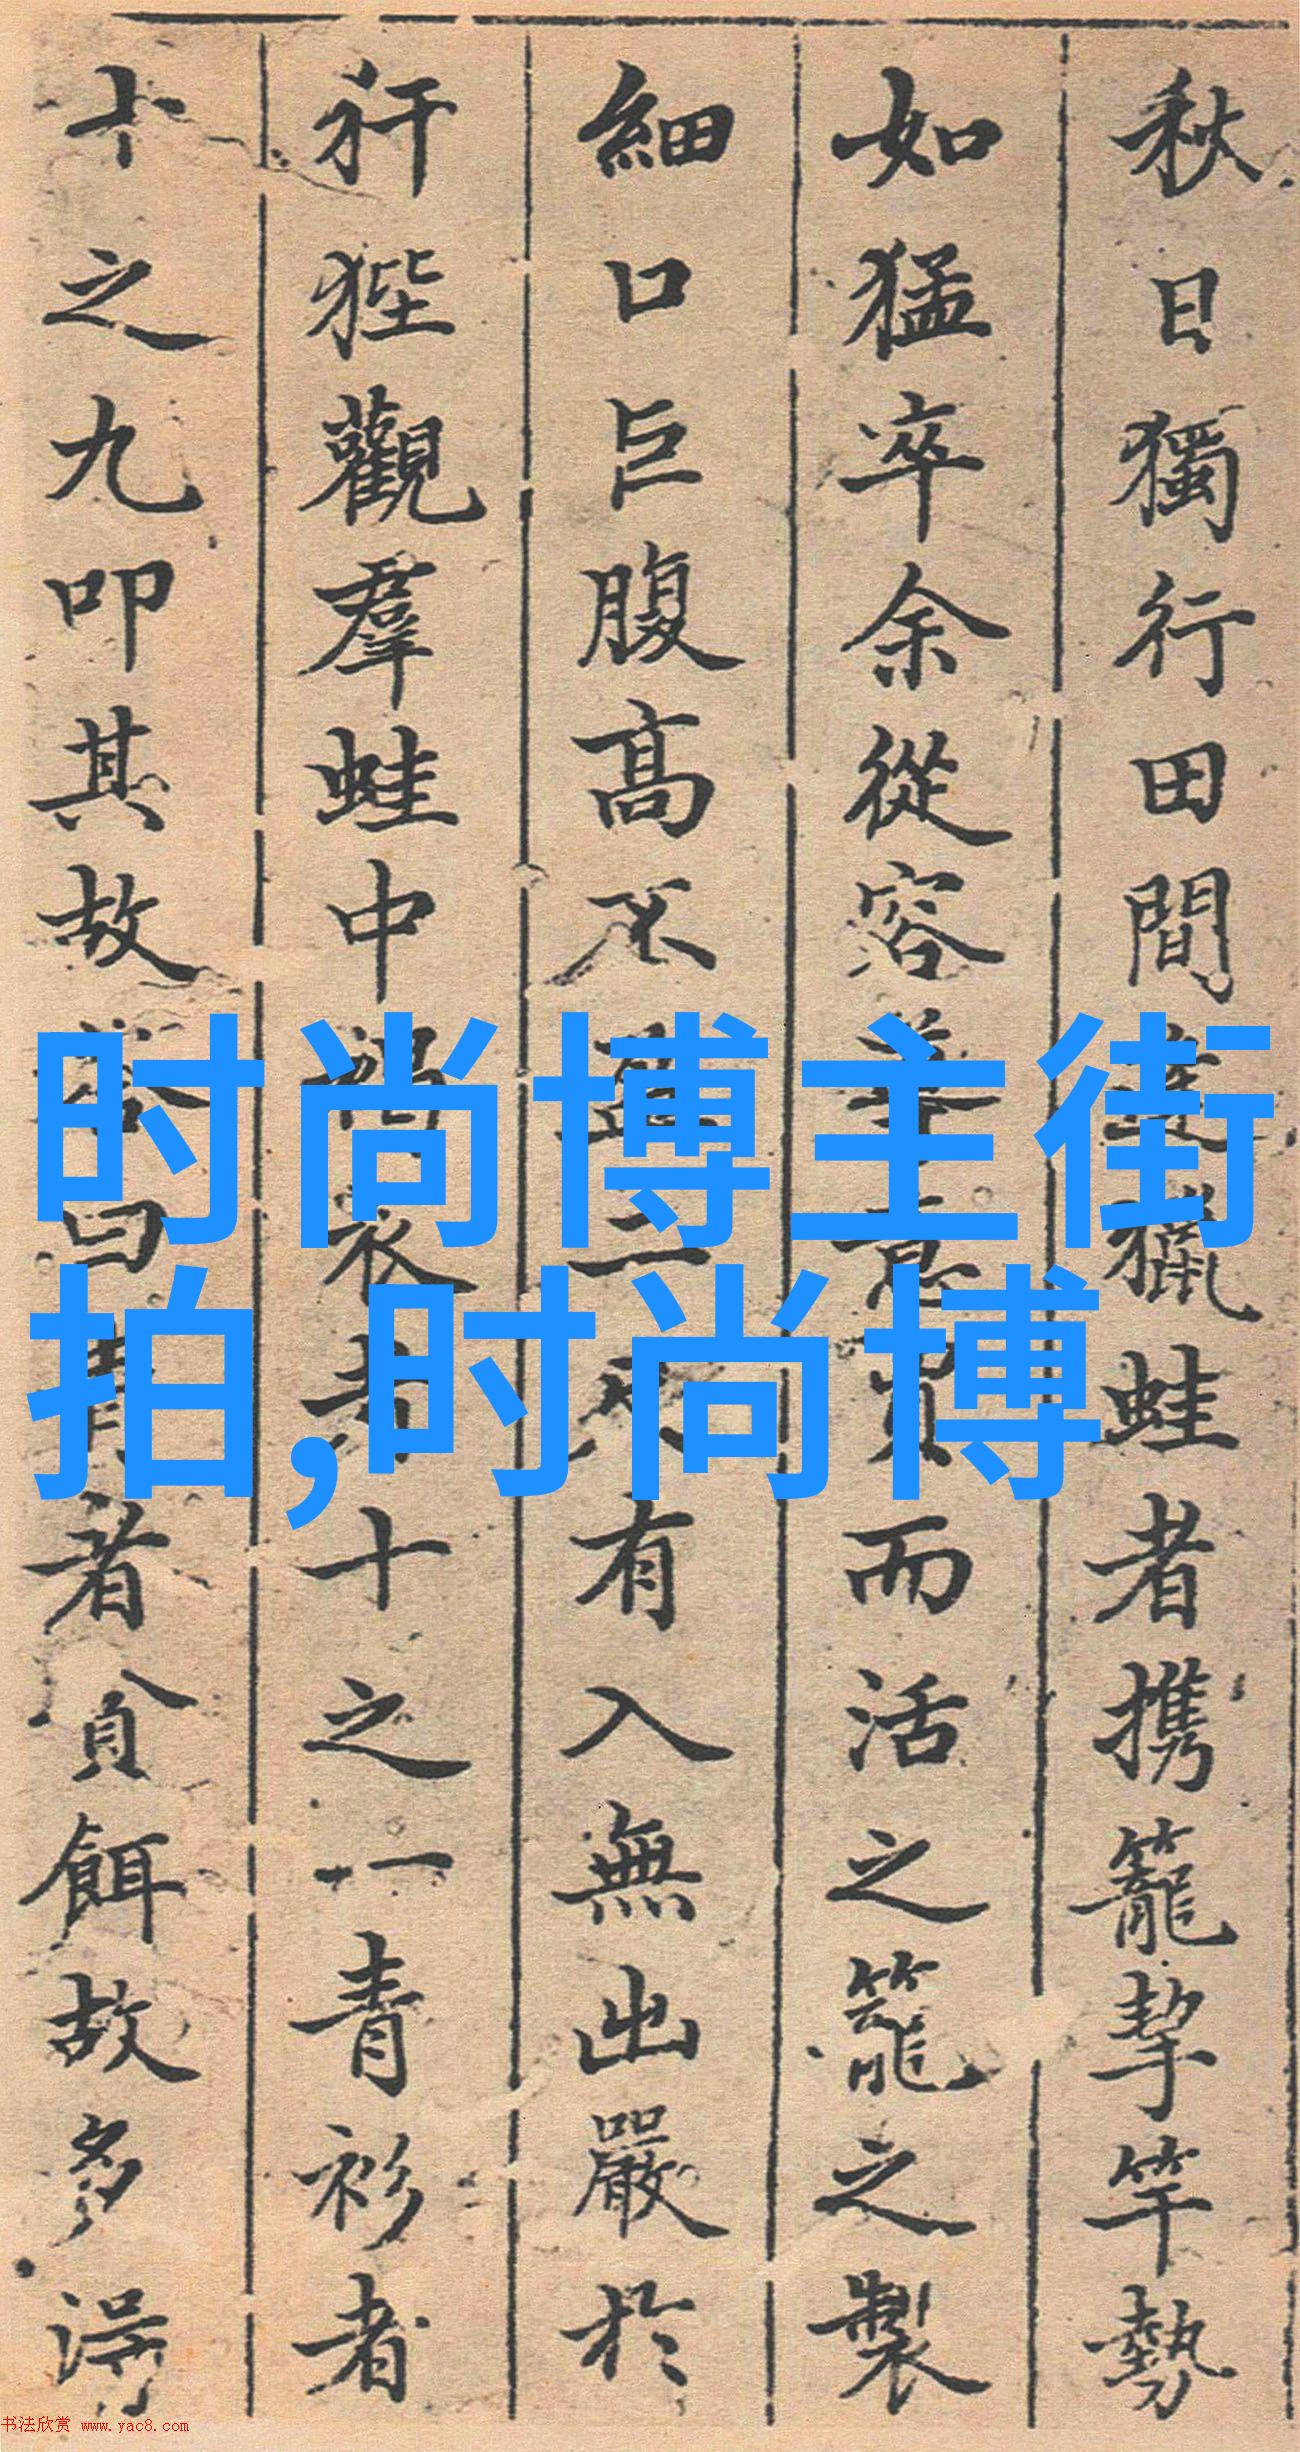 秋日獨行田間
獵蛙者携籠挈竿勢
如猛卒余從容
而活之籠之製
細口巨腹高不
有入無出嚴於
犴狴觀羣蛙中
衣者十之一青衫者
十之九叩其故
曰
者貪餌故多得
时尚博主街
拍,时尚博
书法欣赏 www.yac8.com